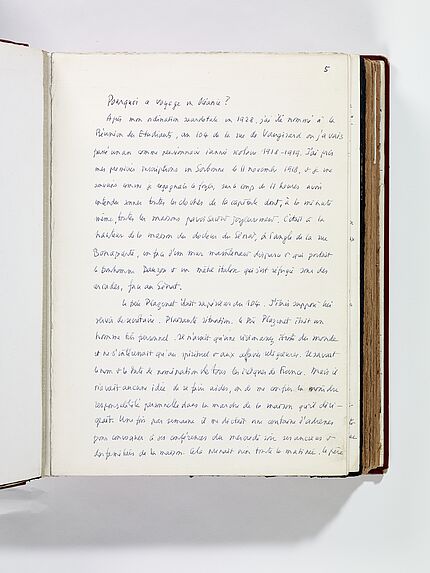 5
Pourquoi ce voyage en Océanie ?
Après mon ordination sacerdotale en 1928, j'ai été nommé à la
Réunion des Etudiants, au 104 de la rue de Vaugirard où j'avais
passé un an comme pensionnaire l'année scolaire 1918-1919. J'ai pris
mes premières inscriptions en Sorbonne le 11 novembre 1918, et je me
souviens comme je regagnais le foyer, sur le coup de 11 heures avoir
entendu sonner toutes les cloches de la capitale dont, à la minute
même, toutes les maisons pavoisaient joyeusement. C'était à la
hauteur de la maison du docteur du Sénat, à l'angle de la rue
Bonaparte, en face d'un mur maintenant disparu et qui portait
le bonhomme et un mètre étalon qui s'est réfugié sous des
arcades, face au Sénat.
Le Père Plazenet était supérieur du 104. J'étais supposé lui
servir de secrétaire. Plaisante situation. Le Père Plazenet était un
homme très personnel. Il n'avait qu'une vision assez étroite du monde
et ne s'intéressait qu'au spirituel et aux affaires religieuses. Il savait
le nom et la date de nomination de tous les évêques de France. Mais il
n'avait aucune idée de se faire aider, ou de me confier la moindre
responsabilité personnelle dans la marche de la maison qu'il diri-
geait. Une fois par semaine il me dictait une centaine d'adresses
pour convoquer à ses conférences du mercredi soir les anciens et
les familiers de la maison. Cela prenait bien toute la matinée. Le père